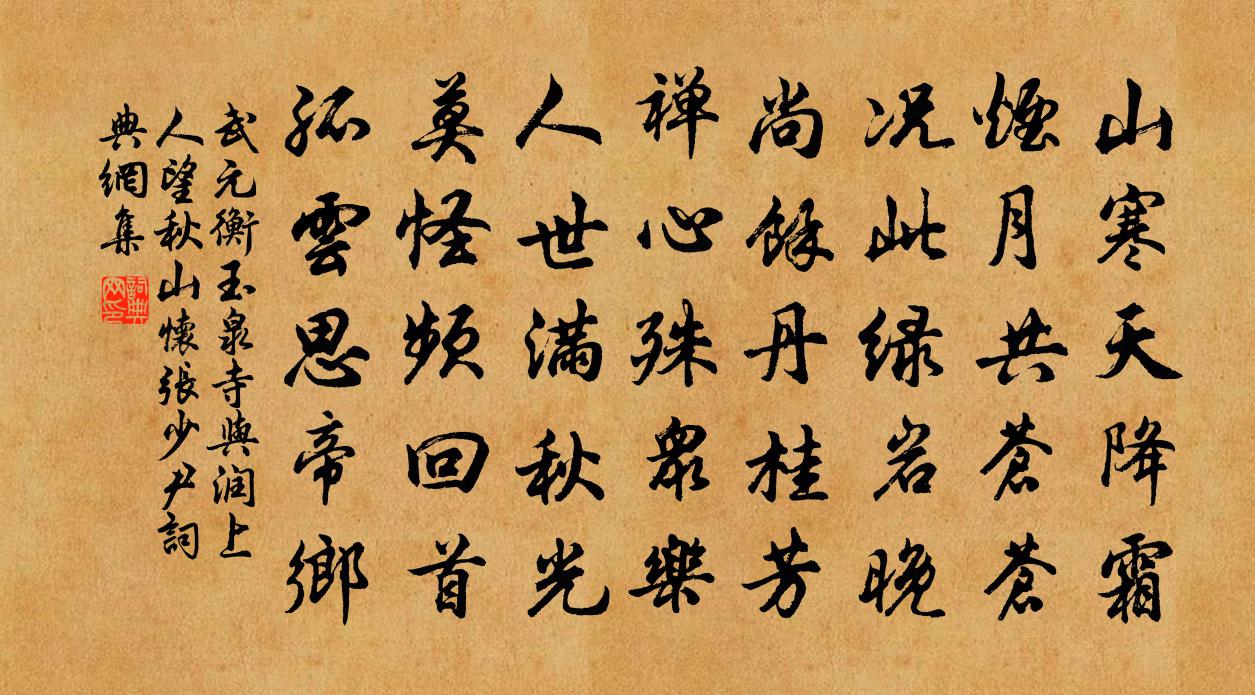 山寒天降霜
煙月共蒼蒼
况此绿岩晚
尚餘丹桂芳
禅心殊眾樂
人世滿秋光
莫怪頻回首
孤雲思帝鄉
武元衡玉泉寺與润上
人望秋山懷張少尹詞
典網集
詞典網印